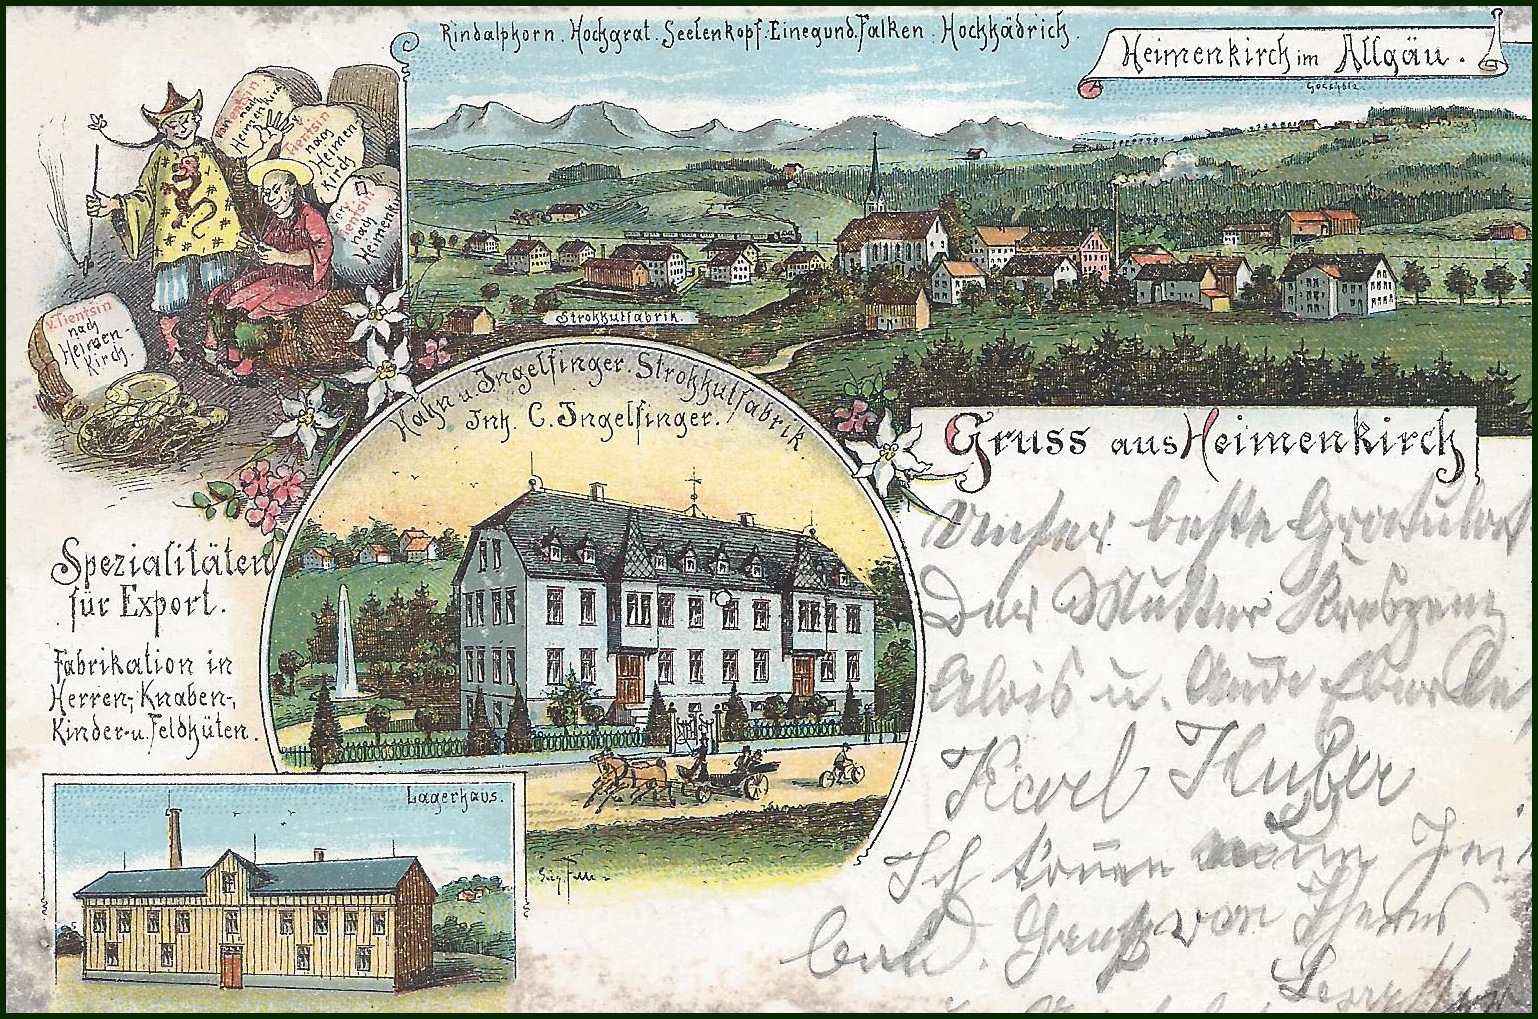 Rindalphorn. Hochgrat. Seelenkopf. Einegund. Falken. Hochhädrich.
Heimenkirch im Allgäu.
Tientsin
nach
Heimenkirch
Tientsin
nach
Heimen
kirch
von
Tientsin
nach
Heimenk
v. Tientsin
nach
Heimen-
kirch.
Strohhutfabrik.
Hahn u. Ingelfinger. Strohhutfabrik.
Inh. C. Ingelfinger.
Gruss aus Heimenkirch
Spezialitäten
für Export.
Fabrikation in
Herren-, Knaben-,
Kinder- u. Feldhüten.
Lagerhaus.
Unser beste Gratulat
Der Mutter Kreszenz
Alois u.
Karl Huber
Ich
bald. Gruß von